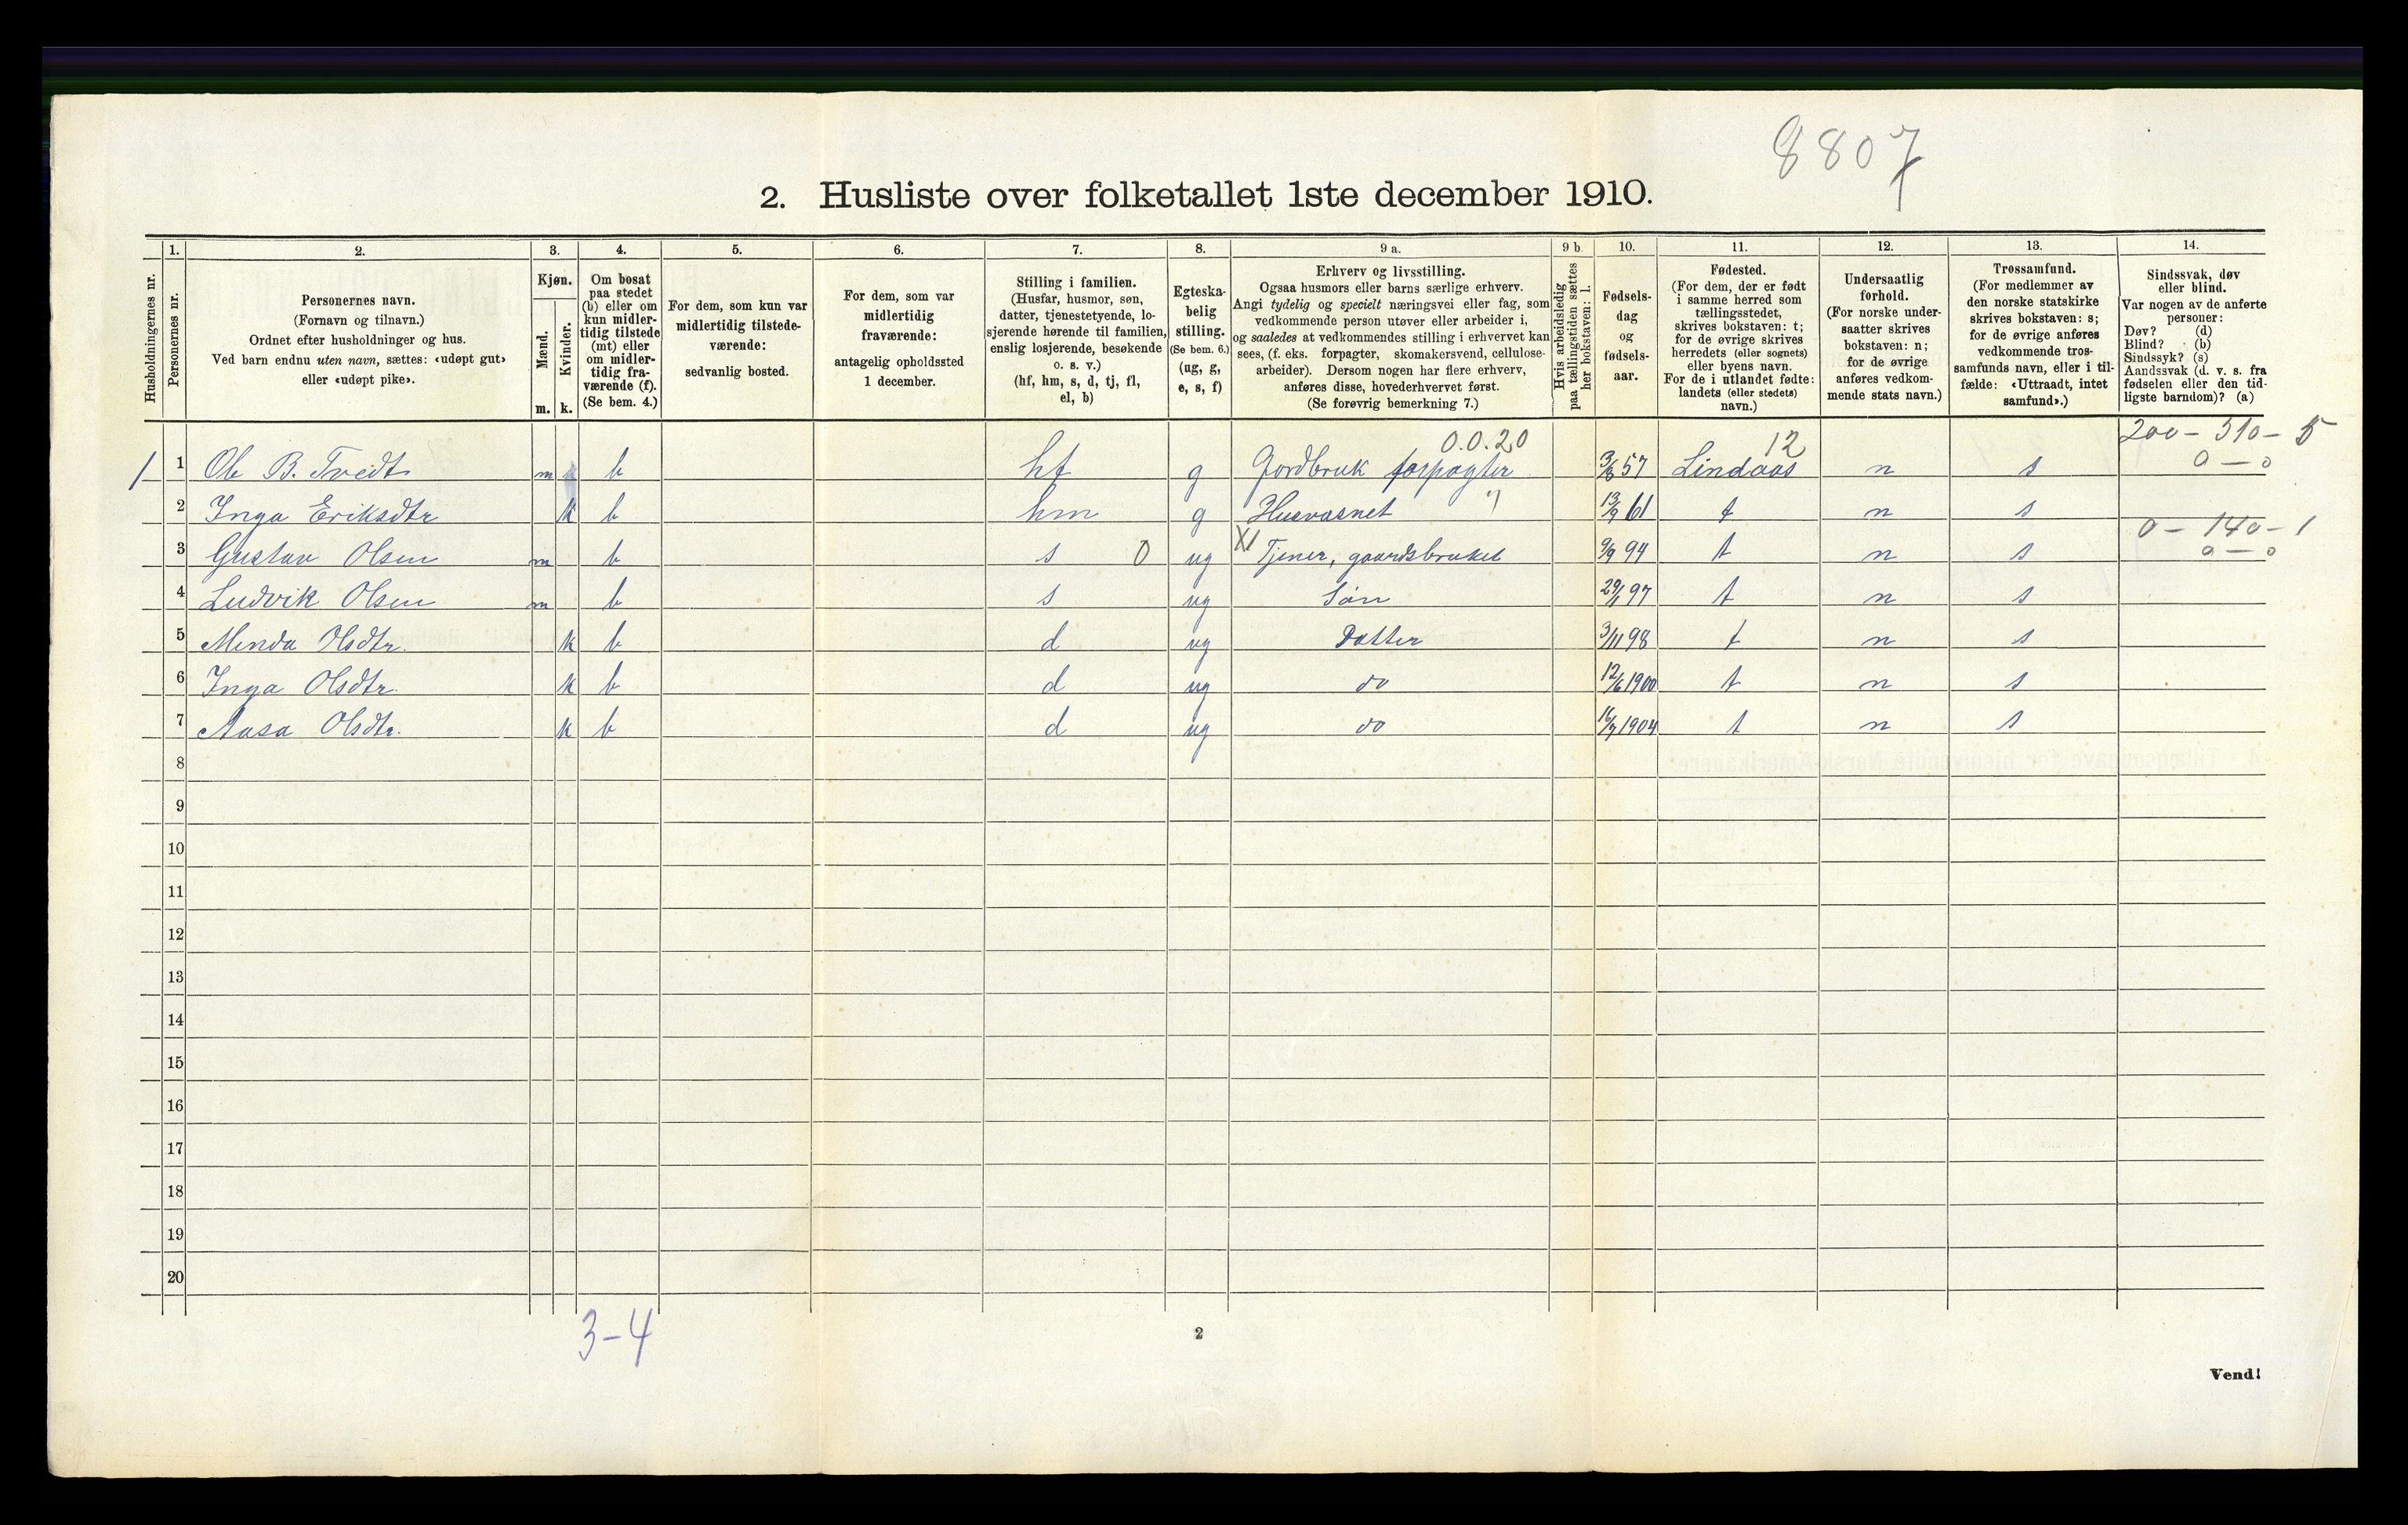 8807
2. Husliste over folketallet 1ste december 1910.
Husholdningernes nr.
1.
Personernes nr.
2.
Personernes navn.
(Fornavn og tilnavn.)
Ordnet efter husholdninger og hus.
Ved barn endnu uten navn, sættes: «udøpt gut»
eller «udøpt pike».
3.
Kjøn.
Mænd.
Kvinder.
m. k.
4.
Om bosat
paa stedet
(b) eller om
kun midler-
tidig tilstede
(mt) eller
om midler-
tidig fra-
værende (f).
(Se bem. 4.)
5.
For dem, som kun var
midlertidig tilstede-
værende:
sedvanlig bosted.
6.
For dem, som var
midlertidig
fraværende:
antagelig opholdssted
1 december.
7.
Stilling i familien.
(Husfar, husmor, søn,
datter, tjenestetyende, lo-
sjerende hørende til familien,
enslig losjerende, besøkende
o. s. v.)
(hf, hm, s, d, tj, fl,
el, b)
8.
Egteska-
belig
stilling.
(Se bem. 6.)
(ug, g,
e, s, f)
9 a.
Erhverv og livsstilling.
Ogsaa husmors eller barns særlige erhverv.
Angi tydelig og specielt næringsvei eller fag, som
vedkommende person utøver eller arbeider i,
og saaledes at vedkommendes stilling i erhvervet kan
sees, (f. eks. forpagter, skomakersvend, cellulose-
arbeider). Dersom nogen har flere erhverv,
anføres disse, hovederhvervet først.
(Se forøvrig bemerkning 7.)
9 b.
Hvis arbeidsledig
paa tællingstiden sættes
her bokstaven: l.
10.
Fødsels-
dag
og
fødsels-
aar.
11.
Fødested.
(For dem, der er født
i samme herred som
tællingsstedet,
skrives bokstaven: t;
for de øvrige skrives
herredets (eller sognets)
eller byens navn.
For de i utlandet fødte:
landets (eller stedets)
navn.)
12.
Undersaatlig
forhold.
(For norske under-
saatter skrives
bokstaven: n;
for de øvrige
anføres vedkom-
mende stats navn.)
13.
Trossamfund.
(For medlemmer av
den norske statskirke
skrives bokstaven: s;
for de øvrige anføres
vedkommende tros-
samfunds navn, eller i til-
fælde: «Uttraadt, intet
samfund».)
14.
Sindssvak, døv
eller blind.
Var nogen av de anførte
personer:
Døv? (d)
Blind? (b)
Sindssyk? (s)
Aandssvak (d. v. s. fra
fødselen eller den tid-
ligste barndom)? (a)
0.0.20 12 200 - 510 - 5
1 1 Ole B. Tvedt m b hf g Jordbruk forpagter 57 Lindaas n s 0 - 0
2 Inga Eriksdtr k b hm g Husvæsnet " 13/9 61 t n s
0 - 140 - 1
3 Gustav Olsen m b s 0 ug X1 Tjener, gaardsbruket 9/9 94 t n s 0 - 0
4 Ludvik Olsen m b s ug Søn 29/1 97 t n s
5 Menda Olsdtr. k b d ug Datter 3/11 98 t n s
6 Inga Olsdtr. k b d ug do 12/6 1900 t n s
7 Aasa Olsdtr. k b d ug do 16/7 1904 t n s
8
9
10
11
12
13
14
15
16
17
18
19
20
3-4
2
Vend!